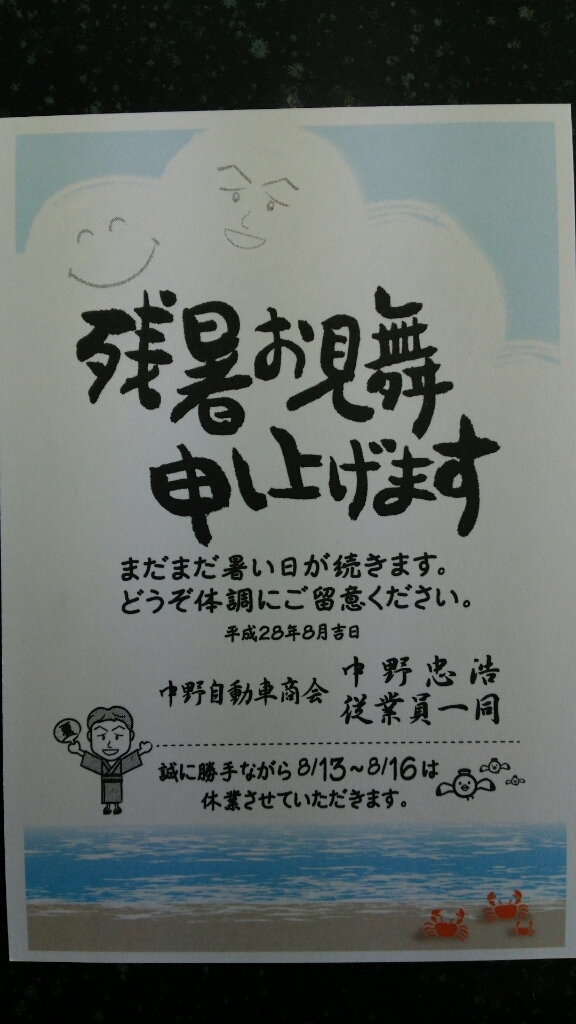 残暑お見舞
申し上げます
まだまだ暑い日が続きます。
どうぞ体調にご留意ください。
平成28年8月吉日
中野自動車商会 中野忠浩
従業員一同
夏
誠に勝手ながら8/13~8/16は
休業させていただきます。